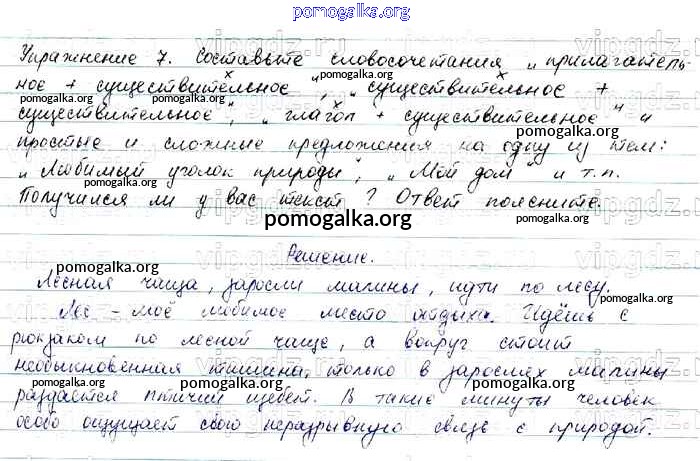 pomogalka.org
Упражнение 7. Составьте словосочетания „прилагатель-
ное + существительное", „существительное +
pomogalka.org pomogalka.org
существительное", „глагол + существительное" и
простые и сложные предложения на одну из тем:
pomogalka.org pomogalka.org
„Любимый уголок природы", „Мой дом" и т.п.
Получился ли у вас текст? Ответ поясните.
pomogalka.org
Решение.
pomogalka.org
Лесная чаща, заросли малины, идти по лесу.
pomogalka.org pomogalka.org
Лес – моё любимое место отдыха. Идёшь с
рюкзаком по лесной чаще, а вокруг стоит
pomogalka.org
необыкновенная тишина, только в зарослях малины
pomogalka.org pomogalka.org pomogalka.org
раздаётся птичий щебет. В такие минуты человек
особо ощущает свою неразрывную связь с природой.
pomogalka.org